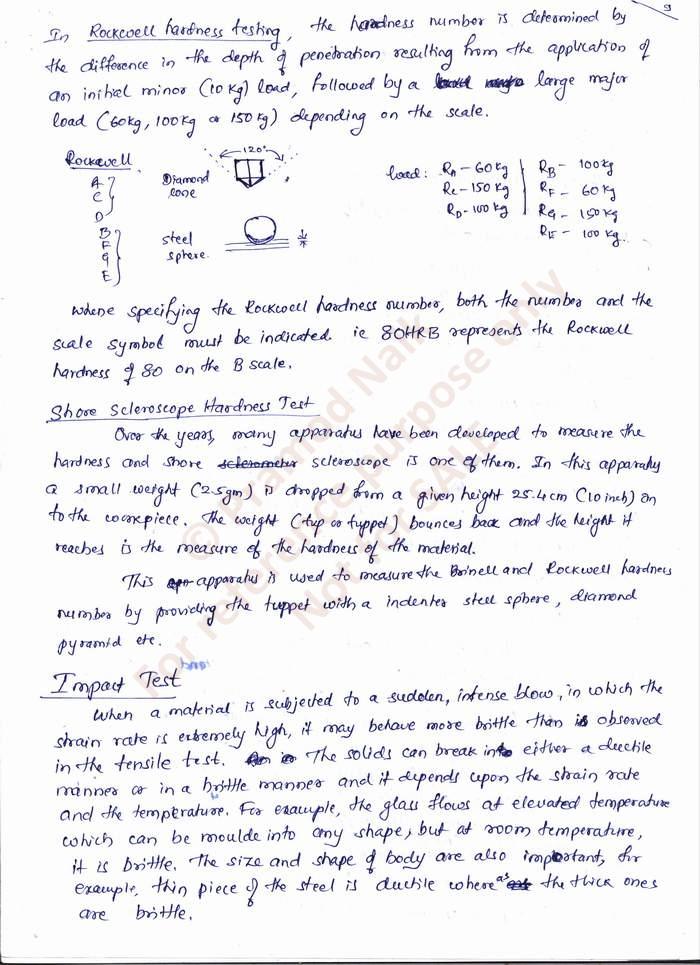 9
In Rockwell hardness testing, the hardness number is determined by
the difference in the depth of penetration resulting from the application of
an initial minor (10 Kg) load, followed by a large major
load (60kg, 100kg or 150 kg) depending on the scale.
Rockwell
A
C
D
B
F
G
E
Diamond
cone
120°
steel
sphere.
load: RA - 60 kg
Rc - 150 kg
RD - 100 kg
RB - 100 kg
RF - 60 kg
RG - 150 kg
RE - 100 kg.
where specifying the Rockwell hardness number, both the number and the
scale symbol must be indicated. ie 80HRB represents the Rockwell
hardness of 80 on the B scale.
Shore Scleroscope Hardness Test
Over the years, many apparatus have been developed to measure the
hardness and shore sclerometer scleroscope is one of them. In this apparatus
a small weight (2.5gm) is dropped from a given height 25.4cm (10 inch) on
to the workpiece. The weight (tup or tuppet) bounces back and the height it
reaches is the measure of the hardness of the material.
This apparatus is used to measure the Brinell and Rockwell hardness
number by providing the tuppet with a indenter steel sphere, diamond
pyramid etc.
Impact Test
When a material is subjected to a sudden, intense blow, in which the
strain rate is extremely high, it may behave more brittle than is observed
in the tensile test. The solids can break into either a ductile
manner or in a brittle manner and it depends upon the strain rate
and the temperature. For example, the glass flows at elevated temperature
which can be moulde into any shape, but at room temperature,
it is brittle. The size and shape of body are also important, for
example, thin piece of the steel is ductile where as the thick ones
are brittle.
© Pramod Naik
For reference purpose only
Not for SALE